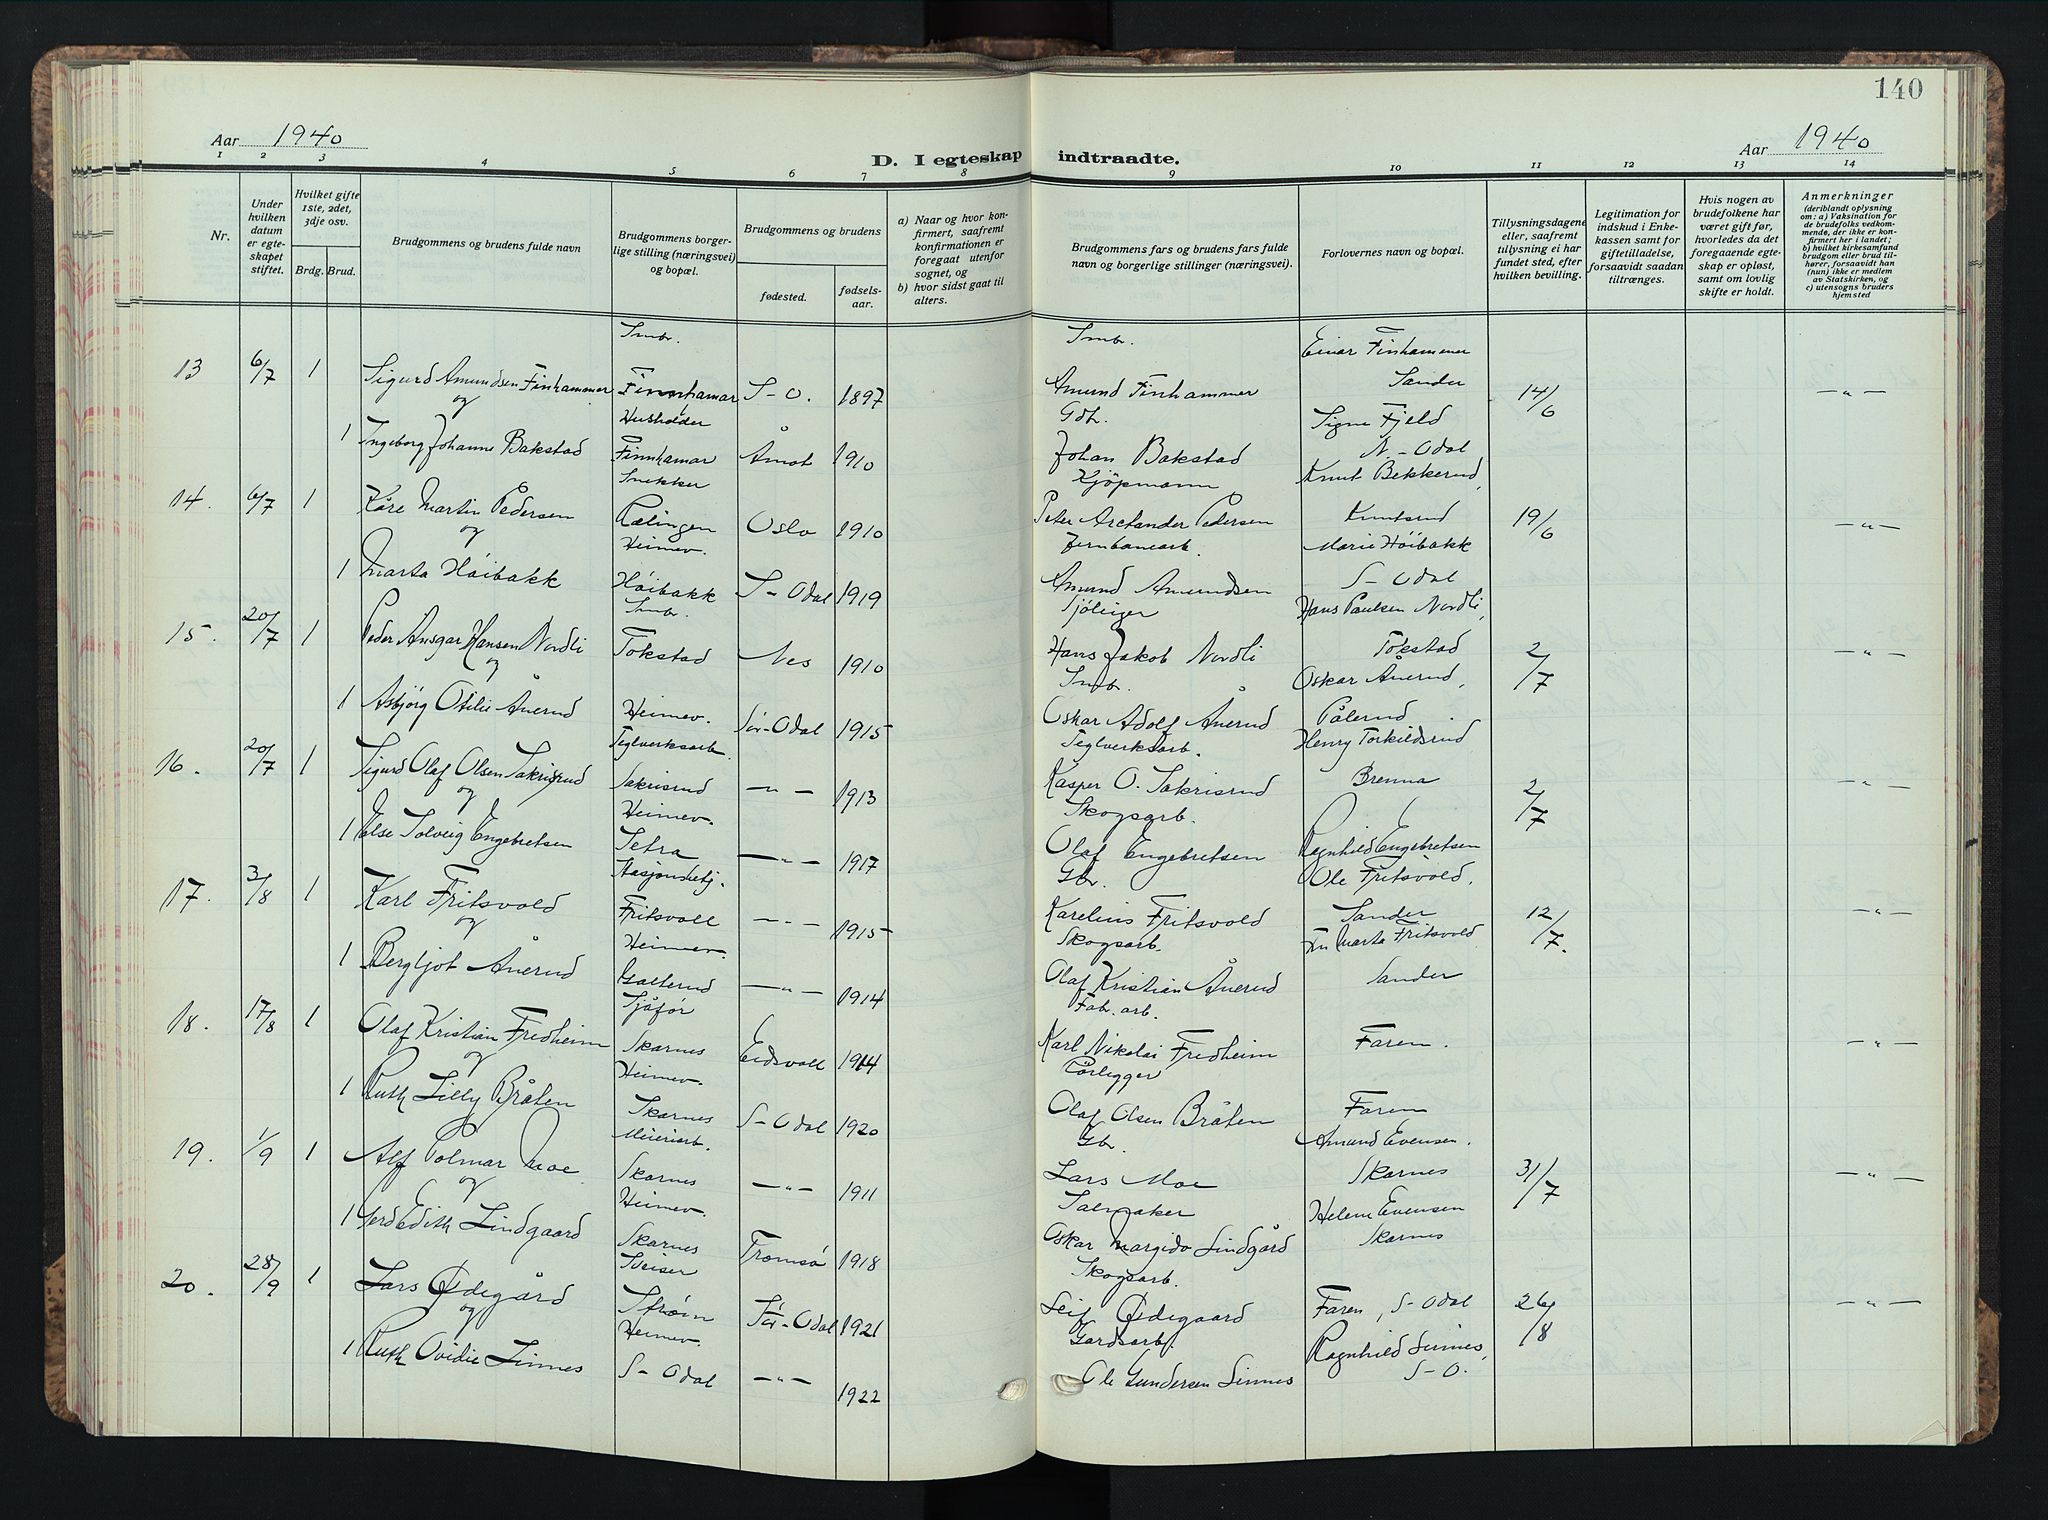 140
Aar 1940
D. I egteskap indtraadte.
Aar 1940
1 2 3 4 5 6 7 8 9 10 11 12 13 14
Nr.
Under hvilken datum er egteskapet stiftet.
Hvilket gifte 1ste, 2det, 3dje osv.
Brdg. Brud.
Brudgommens og brudens fulde navn
Brudgommens borgerlige stilling (næringsvei) og bopæl.
Brudgommens og brudens
fødested.
fødselsaar.
a) Naar og hvor konfirmert, saafremt konfirmationen er foregaat utenfor sognet, og
b) hvor sidst gaat til alters.
Brudgommens fars og brudens fars fulde navn og borgerlige stillinger (næringsvei).
Forlovernes navn og bopæl.
Tillysningsdagene eller, saafremt tillysning ei har fundet sted, efter hvilken bevilling.
Legitimation for indskud i Enkekassen samt for giftetilladelse, forsaavidt saadan tiltrænges.
Hvis nogen av brudefolkene har været gift før, hvorledes da det foregaaende egteskap er opløst, samt om lovlig skifte er holdt.
Anmerkninger
(deriblandt oplysning om: a) Vaksination for de brudefolks vedkommende, der ikke er konfirmert her i landet; b) hvilket kirkesamfund brudgom eller brud tilhører, forsaavidt han (hun) ikke er medlem av Statskirken, og c) utensogns bruders hjemsted
Smbr. Smbr. Einar Finhammer
13 6/7 1 Sigurd Amundsen Finhammer Finnhamar S-O. 1897 Amund Finhammer Sander 14/6 -"-
og Husholder Gdbr. Signe Fjeld
1 Ingeborg Johanne Bakstad Finnhamar Åmot 1910 Johan Bakstad N.-Odal
Snekker Kjöpmann Knut Bekkerud,
14. 6/7 1 Kåre Martin Pedersen Rælingen Oslo 1910 Peter Archander Pedersen Knutsrud 19/6 -"-
og Heimev. Jernbanearb. Marie Höibakk
1 Marta Höibakk Höibakk S-Odal 1919 Amund Amundsen S-Odal
Smbr. Hans Paulsen Nordli,
15. 20/7 1 Peder Ansgar Hansen Nordli Tokstad Nes 1910 Hans Jakob Nordli Tokstad 2/7 -"-
og Smbr. Oskar Ånerud,
1 Asbjörg Otilie Ånerud Heimev. Sør-Odal 1915 Oskar Adolf Ånerud Pålerud
Teglverksarb. Teglverksarb. Henry Torkildsrud
16. 20/7 1 Sigurd Olaf Olsen Sakrisrud Sakrisrud -"- 1913 Kasper O. Sakrisrud Brenna 2/7 -"-
og Heimev. Skogsarb.
1 Else Solveig Engebretsen Setra -"- 1917 Olaf Engebretsen Ragnhild Engebretsen
Stasjonsbetj. Gbr. Ole Fritsvold,
17. 3/8 1 Karl Fritsvold Fritsvoll -"- 1915 Karelius Fritsvold Sander 12/7. -"-
og Heimev. Skogsarb. Fru Marta Fritsvold
1 Bergljot Ånerud Galterud -"- 1914 Olaf Kristian Ånerud Sander
Sjåfør Fab. arb.
18. 17/8 1 Olaf Kristian Fredheim Skarnes Eidsvoll 1914 Karl Nikolai Fredheim Faren. -"-
og Heimev. Rörlegger
1 Ruth Lilly Bråten Skarnes S-Odal 1920 Olaf Olsen Bråten Faren
Meieriarb. Gbr. Amund Evensen.
19. 1/9 1 Alf Polmar Moe Skarnes -"- 1911 Lars Moe Skarnes 31/7 -"-
og Heimev. Salmaker Helene Evensen
1 Gerd Edith Lindgaard Skarnes Tromsø 1918 Oskar Margido Lindgård Skarnes
Skogsarb.
20. 28/9 1 Lars Ødegård Strøm Sør-Odal 1921 Leif Ødegaard Faren, S-Odal 26/8 -"-
og Heimev. Gardsarb. Ragnhild Linnes,
1 Ruth Ovidie Linnes S-Odal -"- 1922 Ole Gundersen Linnes S-O.